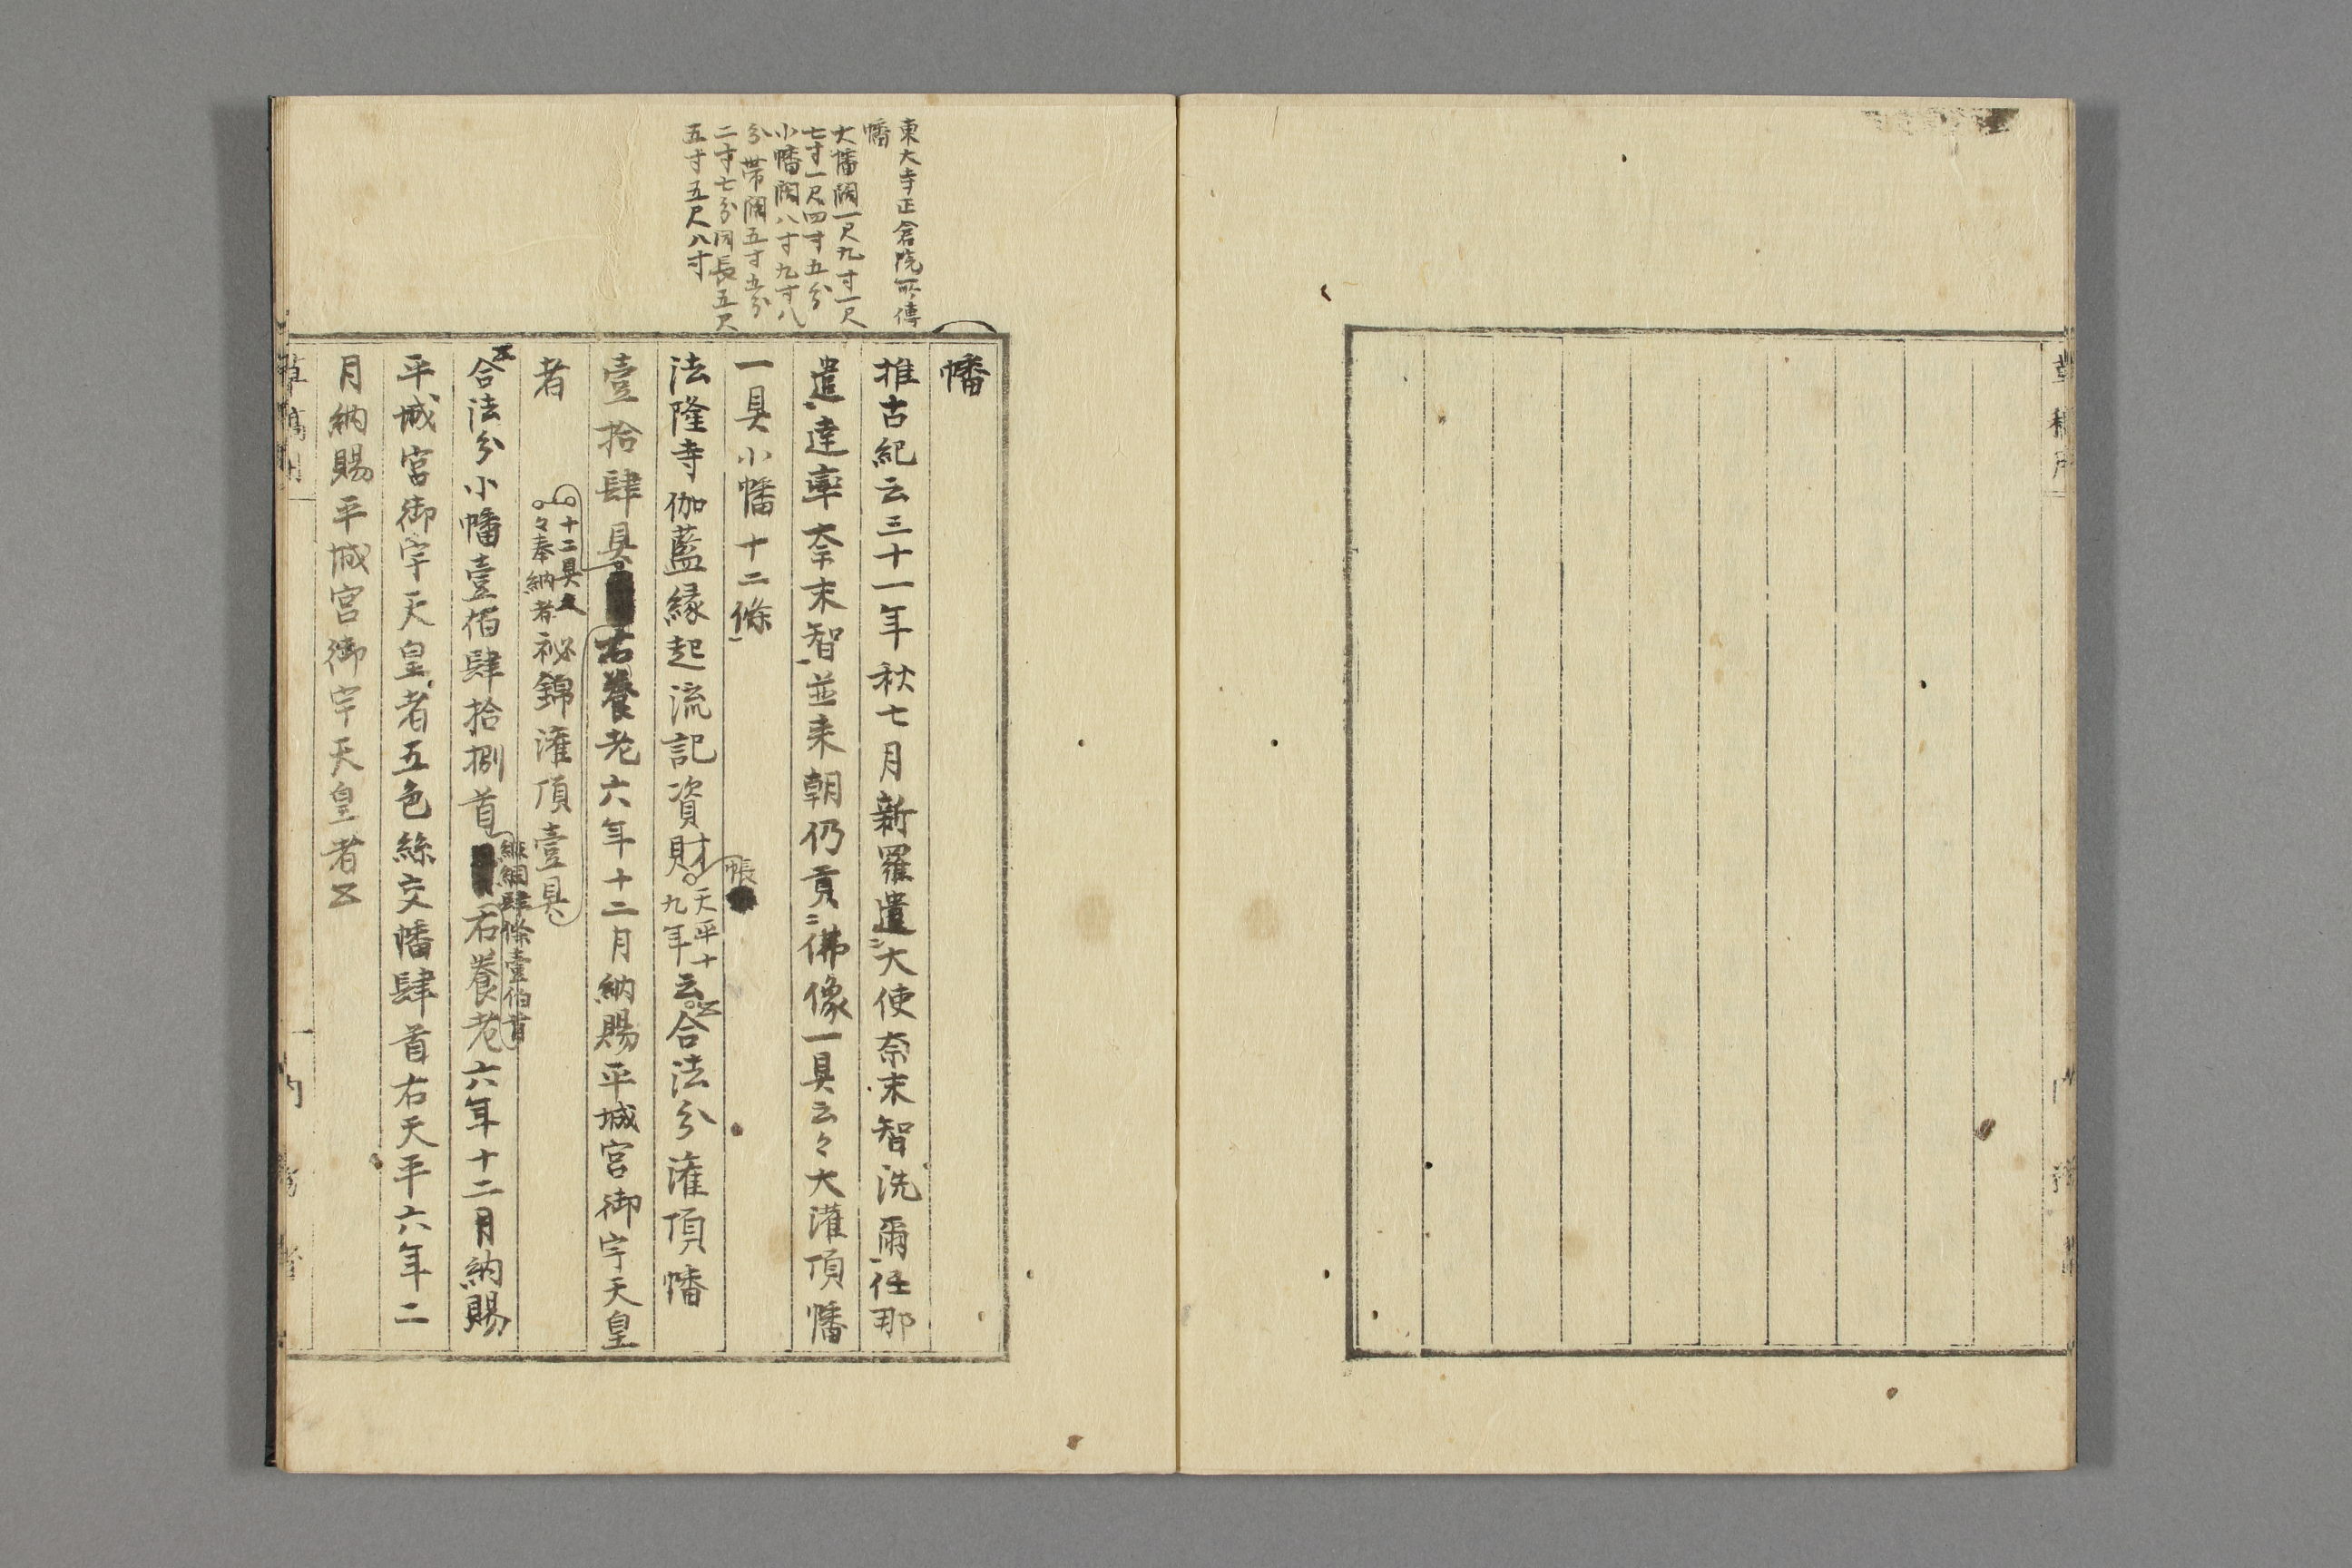 東大寺正倉院所傳
幡
大幡濶一尺九寸一尺
七寸一尺四寸五分
小幡濶八寸九寸八
分帯濶五寸五分
二寸七分同長五尺
五寸五尺八寸
幡
推古紀云三十一年秋七月新羅遣大使奈末智洗爾任那
遣達率奈末智並来朝仍貢佛像一具云々大灌頂幡
一具小幡十二條
帳
法隆寺伽藍縁起流記資財天平十
九年云合法分潅頂幡
壹拾肆具右養老六年十二月納賜平城宮御宇天皇
者
十二具
々奉納者
祕錦潅頂壹具
合法分小幡壹佰肆拾捌首右養老六年十二月納賜
綱肆條壹佰首
平城宮御宇天皇者五色絲交幡肆首右天平六年二
月納賜平城宮御宇天皇者